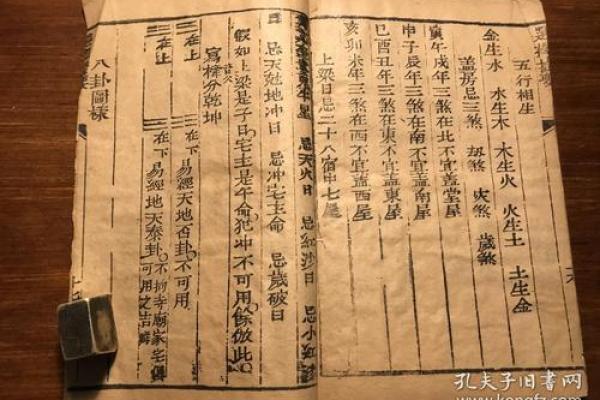 五行相生
金生水 水生木 木生火 火生土 土生金
蓋房忌三煞 刼煞 灾煞 歲煞
寅午戌年三煞在北不宜蓋堂屋
申子辰年三煞在南不宜蓋南屋
巳酉丑年三煞在東不宜蓋東屋
亥卯未年三煞在西不宜蓋西屋
上梁日忌二十八宿中七星
忌天火日 忌紅沙日 忌小紅
日 忌天兙地冲日 忌冲宅主命 忌歲破日
假如上梁是子日宅主是午命犯冲不可用餘倣此
寫樑分乾坤
在上 在下易經天地否卦不可用
在上 在下易經地天泰卦不拘寺廟家宅俱可用之吉
八卦圖樣
孔夫子旧書网